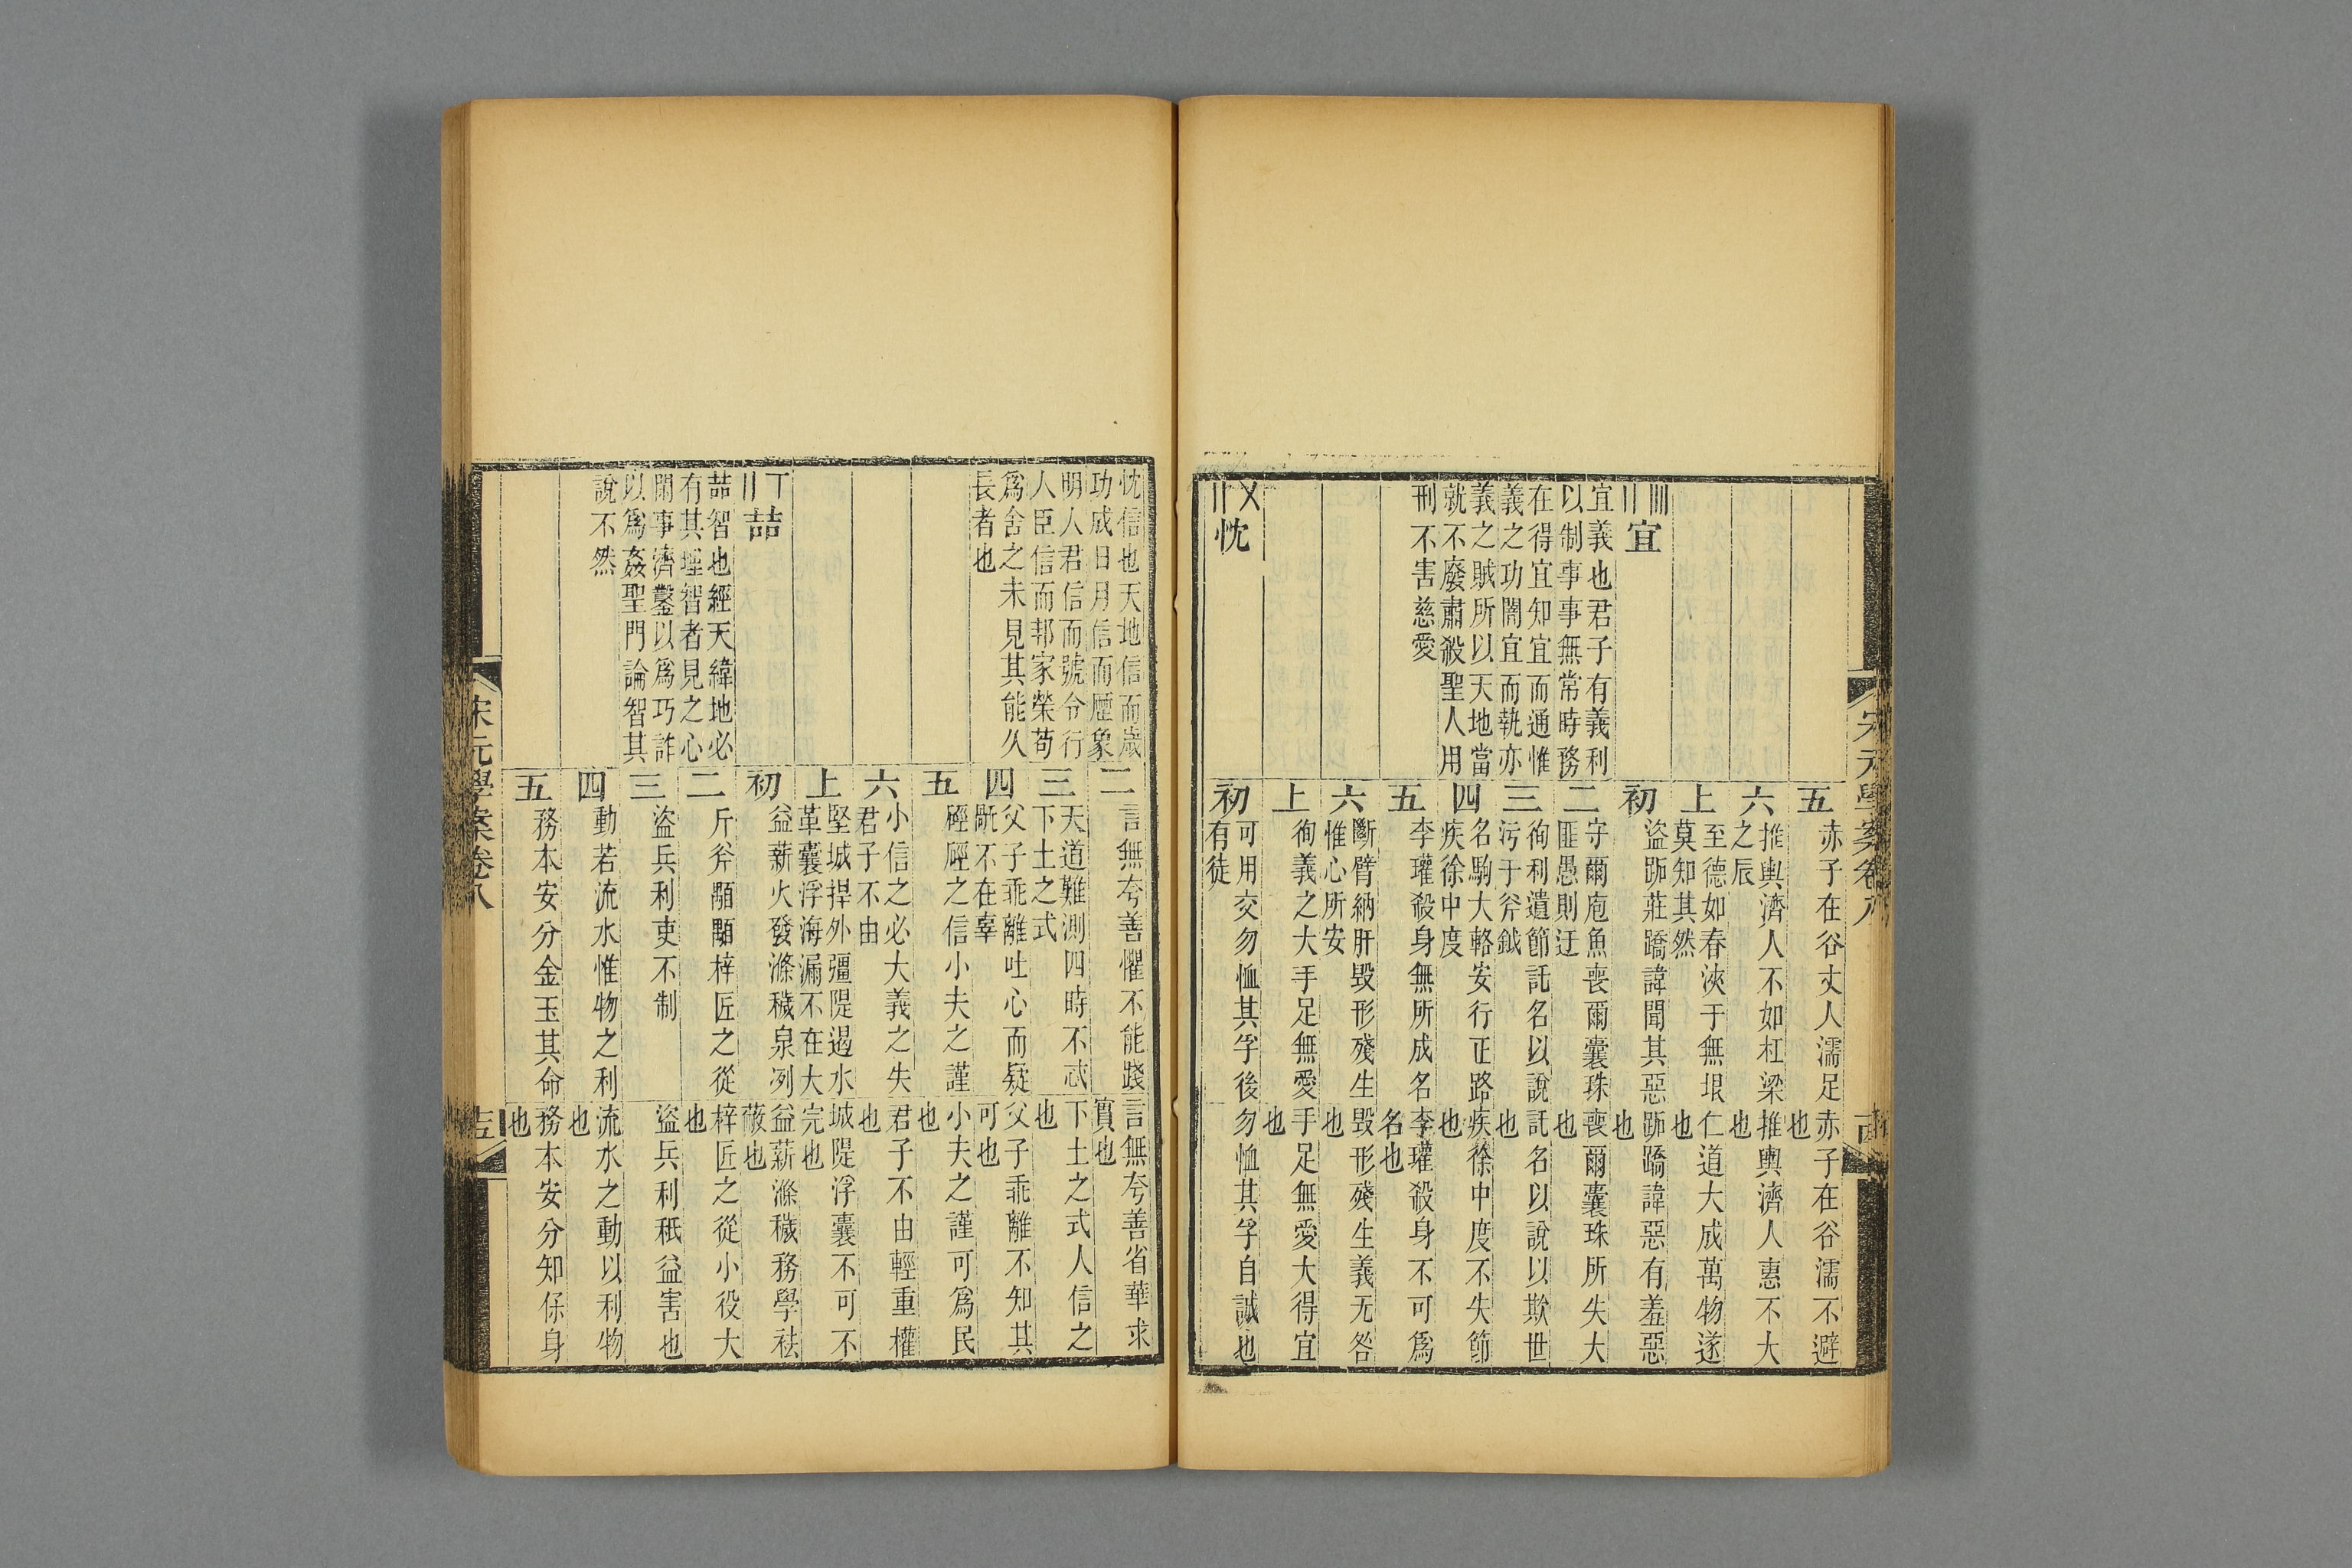 宋元學案卷八
五
赤子在谷丈人濡足
赤子在谷濡不避
也
六
推輿濟人不如杠梁
之辰
推輿濟人惠不大
也
上
至德如春浹于無垠
莫知其然
仁道大成萬物遂
也
宜
宜義也君子有義利
以制事事無常時務
在得宜知宜而通惟
義之功闇宜而執亦
義之賊所以天地當
就不廢肅殺聖人用
刑不害慈愛
初
盜跖莊蹻諱聞其惡
跖蹻諱惡有羞惡
也
二
守爾庖魚喪爾囊珠
匪愚則迂
喪爾囊珠所失大
也
三
徇利遺節託名以說
污于斧鉞
託名以說以欺世
也
四
名駒大輅安行正路
疾徐中度
疾徐中度不失節
也
五
李瓘殺身無所成名
李瓘殺身不可為
名也
六
斷臂納肝毀形殘生
惟心所安
毀形殘生義无咎
也
上
徇義之大手足無愛
手足無愛大得宜
也
忱
初
可用交勿恤其孚後
有徒
勿恤其孚自誠也
忱信也天地信而歲
功成日月信而厯象
明人君信而號令行
人臣信而邦家榮苟
爲舍之未見其能久
長者也
二
言無夸善懼不能踐
言無夸善省華求
實也
三
天道難測四時不忒
下土之式
下土之式人信之
也
四
父子乖離吐心而疑
厥不在辜
父子乖離不知其
可也
五
硜硜之信小夫之謹
小夫之謹可爲民
也
六
小信之必大義之失
君子不由
君子不由輕重權
也
上
堅城捍外彊隄遏水
革囊浮海漏不在大
城隄浮囊不可不
完也
喆
喆智也經天緯地必
有其理智者見之心
閑事濟鑿以爲巧詐
以爲姦聖門論智其
說不然
初
益薪火發滌穢泉冽
益薪滌穢務學祛
蔽也
二
斤斧顒顒梓匠之從
梓匠之從小役大
也
三
盜兵利吏不制
盜兵利秖益害也
四
動若流水惟物之利
流水之動以利物
也
五
務本安分金玉其命
務本安分知保身
也
宋元學案卷八